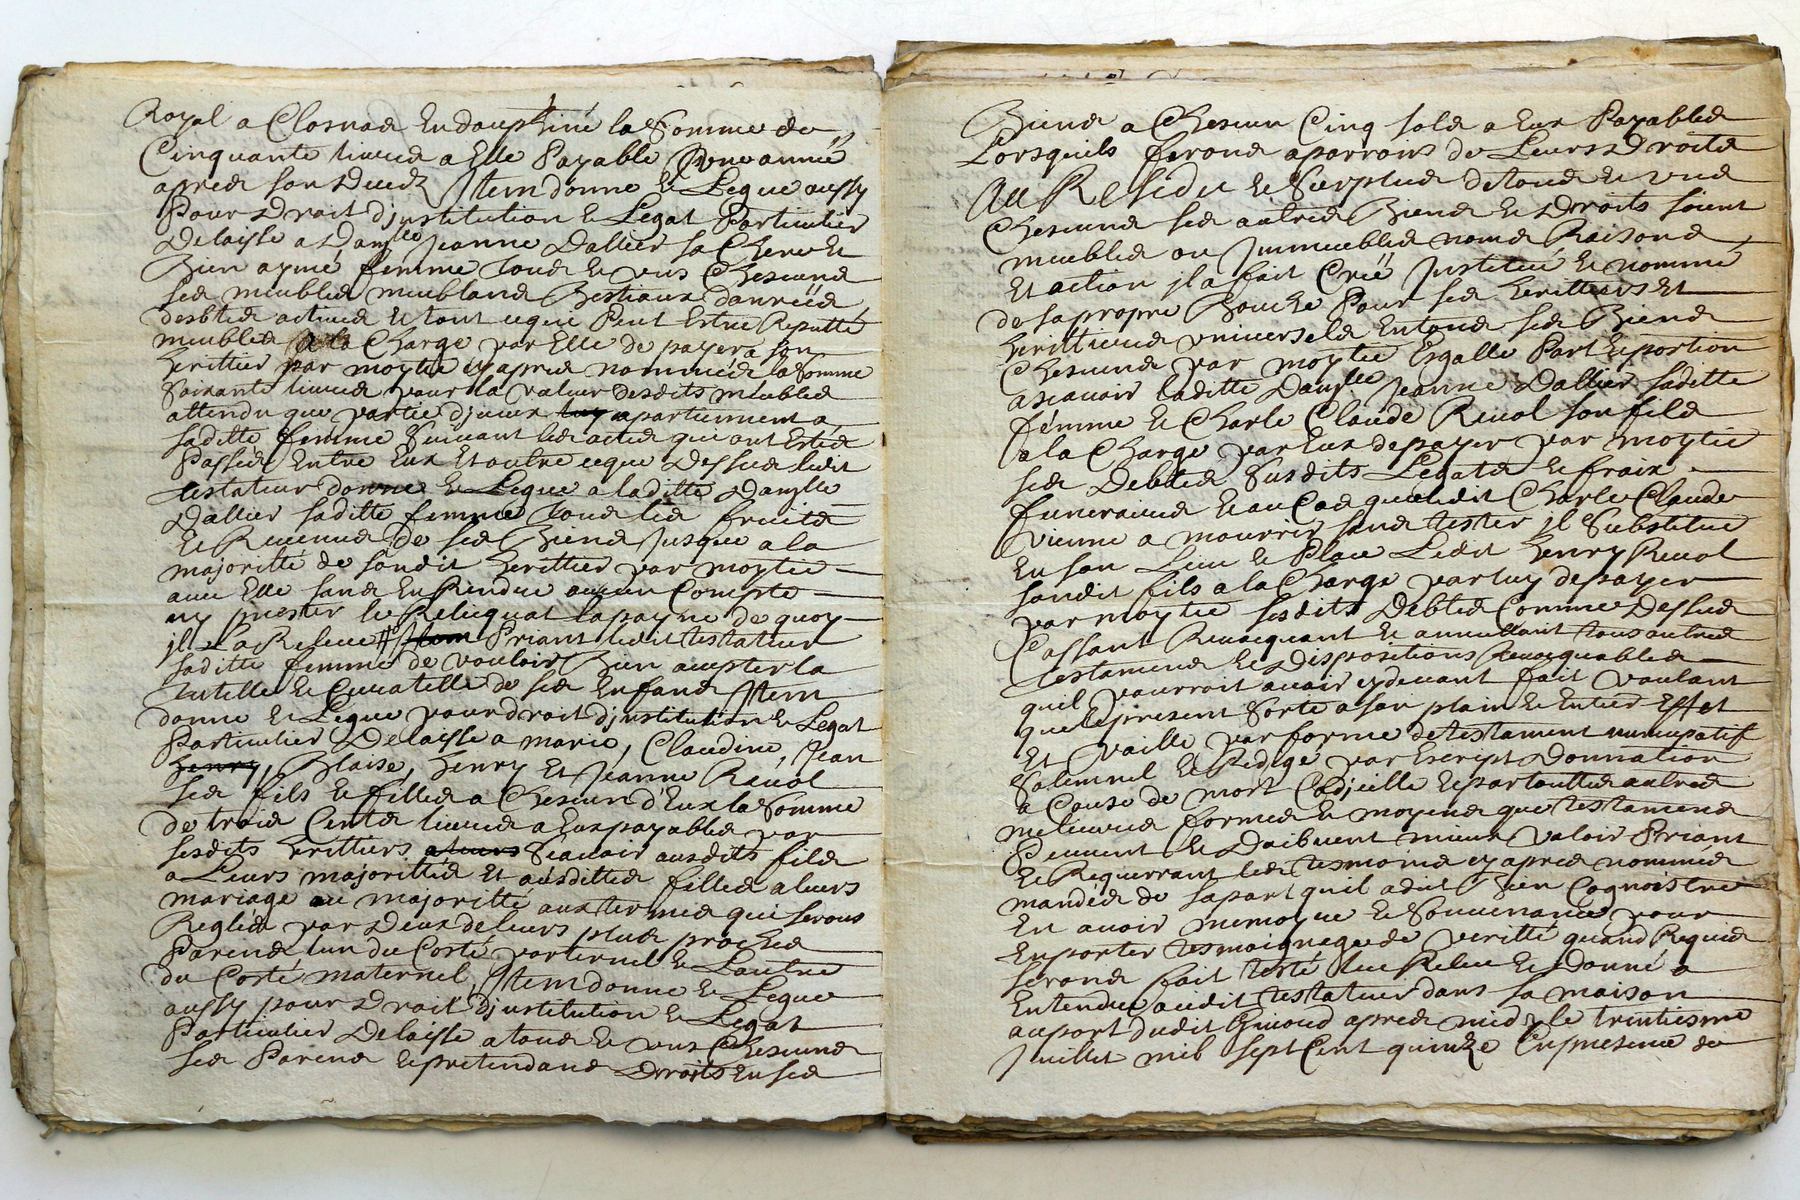 Royal a Closnae En dauphiné la Somme de
Cinquante livres a Elle Payable Une année
apres son Deces Item donne & Legue aussy
Pour Droit d'jnstitution & Legat Particulier
Delaisse a Damlle Jeanne Dallier sa Chere Et
Bien aymé femme tous & uns Chescuns
ses meubles meublans Bestiaux danréés
desbtes actives & tout ceque Peut Estre Reputté
meubles a la Charge par Elle de payer a son
heritier par moytie cy apres nommée la Somme
Soixante livres pour la valeur desdits meubles
attendu que partie d'jceux apartiennent a
saditte femme Suivant les actes que ont Estés
Passés Entre Eux Et outre ceque Dessus ledit
testateur donne & Legue a laditte Damlle
Dallier saditte femme tous les fruits
& Revenus de ses Biens Jusques a la
majoritté de sondit heritier par moytie
avec Elle sans En Rendre aucun Compte
ny prester le Relicquat la payne de quoy
jl La Releve # Item Priant ledit testateur
saditte femme de vouloir Bien accepter la
tutelle & Curatelle de ses Enfans Item
donne & Legue pour droit d'jnstitution & Legat
Particulier Delaisse a marie, Claudine, Jean
henry, Blaise, henry Et Jeanne Revol
ses fils & filles a Chescun d'Eux la Somme
de trois Cents livres a Eux payables par
sesdits heritiers a leurs Scavoir ausdits fils
a Leurs majorittés Et ausdittes filles a leurs
mariage ou majoritté aux termes qui serons
Reglés par Deux de leurs plus proches
Parens lun du Costé parternel & Lautre
du Costé maternel, Item donne & Legue
aussy pour Droit d'jnstitution & Legat
Particulier Delaisse a tous & uns Chescuns
ses Parens & pretendans Droits En ses
Biens a Chescun Cinq sols a Eux Payables
Lorsquils ferons aparroir de Leurs Droits
Au Residu & Surplus de tous & uns
Chescuns ses autres Biens & Droits soient
meubles ou Jmmeubles noms Raisons
Et action jl a fait Créé Jnstitué & nommé
de sa propre Bouche Pour ses heritiers Et
heritieres universels En tous ses Biens
Chescuns par moytie Esgalle Part & portion
ascavoir laditte Damlle Jeanne Dallier saditte
femme & Charle Claude Revol son fils
a la Charge par Eux de payer par moytie
ses Debtes Susdits Legats & fraix
funeraires & au Cas que ledit Charle Claude
vienne a mourrir sans tester jl Substitue
En son Lieu & Place Ledit henry Revol
sondit fils a la Charge par luy de payer
par moytie sesdits Debtes Comme Dessus
Cassant Revocquant & annullant tous autres
testamens & Dispositions Revocquables
quil pourroit avoir cy devant fait voulant
que le present Sorte a son plain & Entier Effet
Et vaille par forme de testament nuncupatif
Solemnel & Redigé par Escript Donnation
a Cause de mort Codjcille & par touttes autres
melieures formes & moyens que testamens
Peuvent & Doibvent mieux valoir Priant
& Requerrant les tesmoins cy apres nommés
mandés de sa part quil a dit Bien Cognoistre
En avoir memoyre & Souvenance pour
En porter tesmoignage de veritté quand Requis
serons fait testé leu Releu & Donné a
Entendre audit testateur dans sa maison
au port dudit Gruoud apres midy le trentiesme
Juillet mil sept Cent quinze En presence de